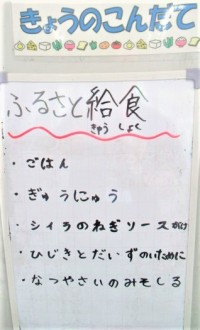 きょうのこんだて
ふるさと給食
きゅう しょく
・ごはん
・ぎゅうにゅう
・シイラのねぎソースがけ
・ひじきとだいずのいために
・なつやさいのみそしる